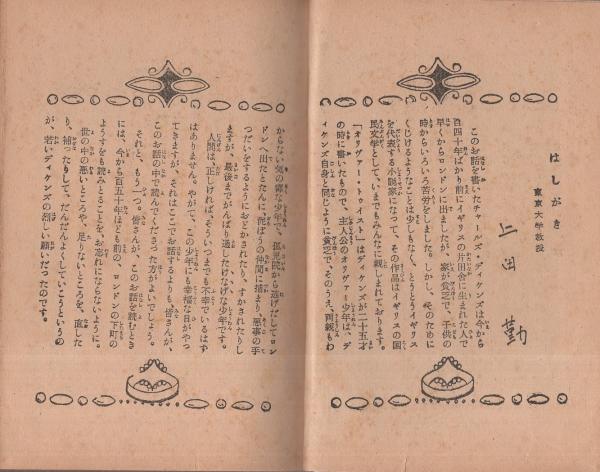 はしがき
東京大学教授
上田 勤
このお話を書いたチャールズ・ディケンズは今から
百四十年ばかり前にイギリスの片田舎に生まれた人で
早くからロンドンに出ましたが、家が貧乏で、子供の
時からいろいろ苦労をしました。しかし、そのために
くじけるようなことは少しもなく、とうとうイギリス
を代表する小説家になって、その作品はイギリスの国
民文学として、いまでもみんなに親しまれております。
「オリヴァー・トゥイスト」はディケンズが二十五才
の時に書いたもので、主人公のオリヴァー少年は、デ
ィケンズ自身と同じように貧乏で、そのうえ、両親もわ
からない気の毒な少年で、孤児院から逃げだしてロン
ドンへ出たとたんに、泥ぼうの仲間に捕まり、悪事の手
つだいをするようにおどかされたり、すかされたりし
ますが、最後までがんばり通したけなげな少年です。
人間は、正しければ、そういつまでも不幸でいるはず
はありません。やがて、この少年にも幸福な日がやっ
てきますが、それはここでお話するよりも、皆さんが、
このお話の中で読んでくださった方がよいでしょう。
それと、もう一つ。皆さんが、このお話を読むとき
には、今から百五十年ほども前の、ロンドンの下町の
ようすをも読みとることを、お忘れにならないように。
世の中の悪いところや、足りないところを、直した
り、補ったりして、だんだんよくしていこうというの
が、若いディケンズの烈しい願いだったのです。